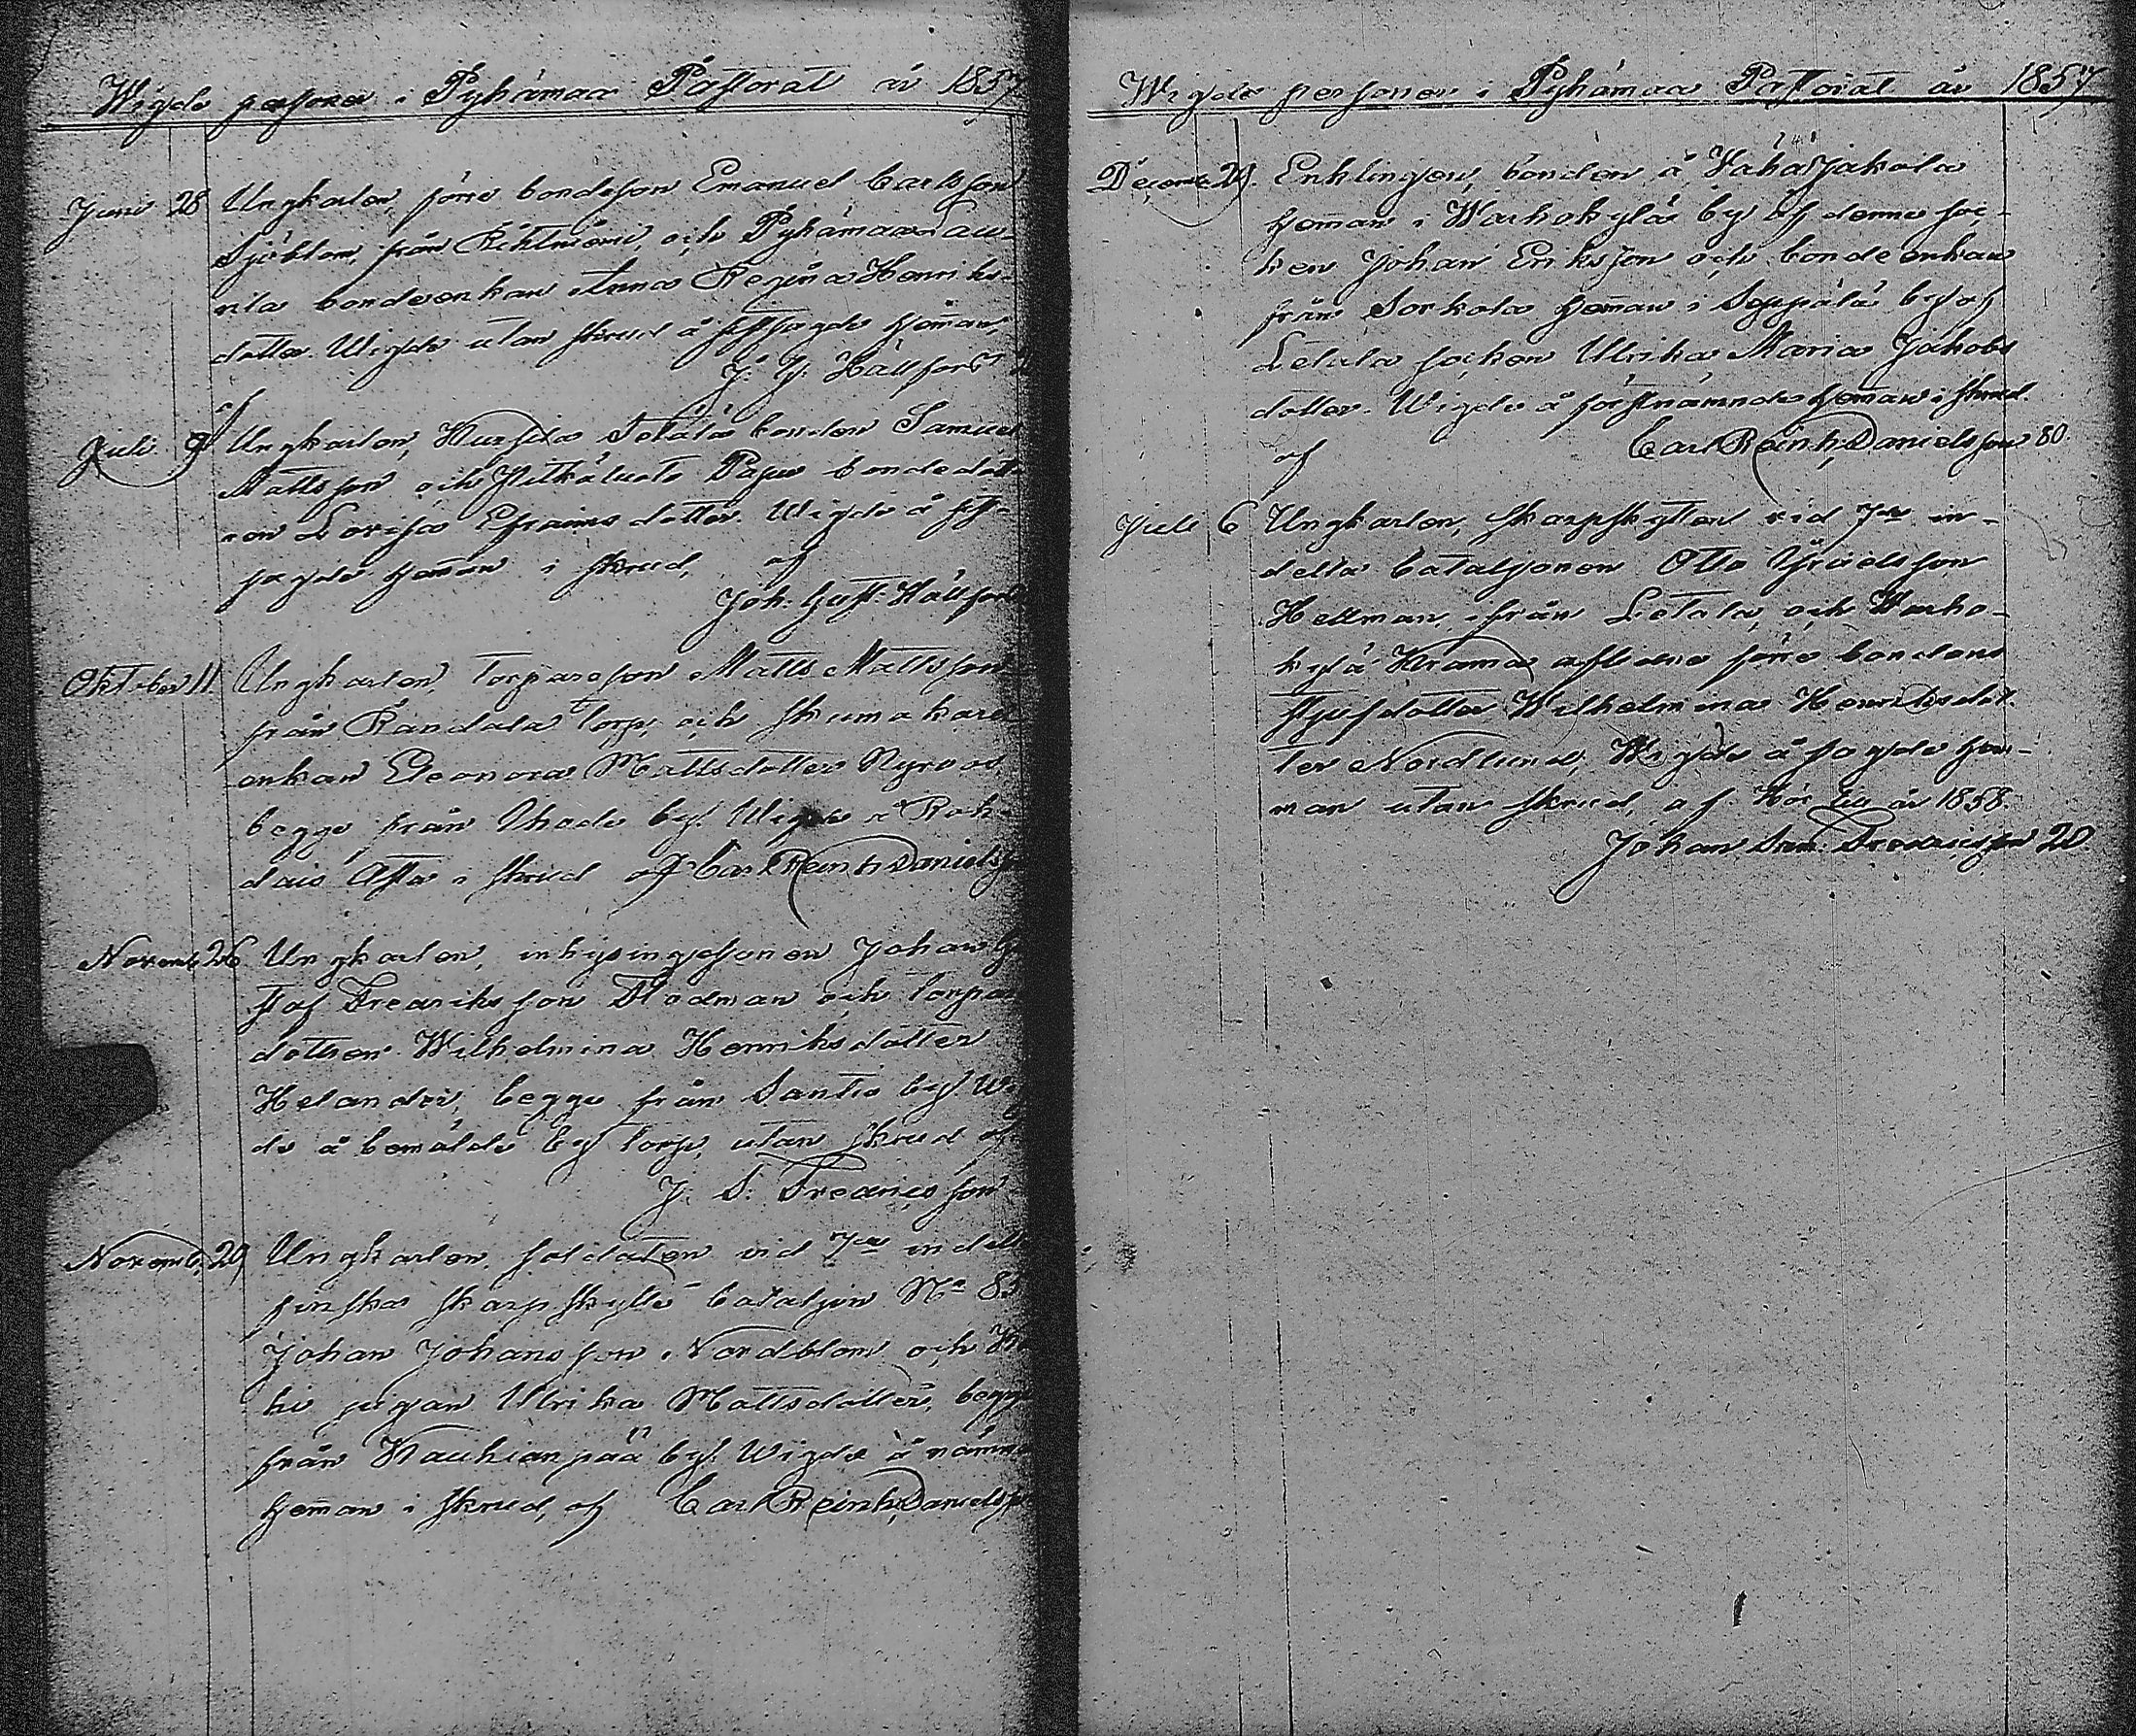 Wigde personer i Pyhämaa Pastorat år 1857
Juni 28 Ungkarlen, förre bondeson Emanuel Carlsson
Sjöblom, från och Pyhämaa Lau-
rila bondeenkan Anna Regina Henriks-
dotter. Wigde utan skrud å sistsagde hemman,
af J. G. Hällfors
Juli 9 Ungkarlen, Kursila Setälä bonden Samuel
Mattsson och Pitkäluoto Papu bondedott-
ren Lovisa Efraimsdotter. Wigde å sist-
sagde hemman i skrud, af
Joh: Gust: Hällfors
Oktober 11. Ungkarlen, torpareson Matts Mattsson
från Randala torp, och skomakare
enkan Eleonora Mattsdotter Nyroos,
begge från Ihode by. Wigde å Roh-
dais Åsta i skrud af Carl Reinh. Danielsson
Novemb. 26 Ungkarlen, inhysingssonen Johan Gu-
staf Fredriksson Flodman och torpare
dottren Wilhelmina Henriksdotter
Helander, begge från Santio by. Wig-
de å bemälde by torp, utan skrud af
J. S. Fredricsson
Novemb. 29 Ungkarlen, soldaten vid 7de indelta
finska skarpskytte bataljon No 85
Johan Johansson Nordblom och
pigan Ulrika Mattsdotter, begge
från Kauhianpää by. Wigde å nämnde
hemman i skrud, af Carl Reinh. Danielsson
Wigde personer i Pyhämaa Pastorat år 1857
Decemb. 29. Enklingen, bonden å Vähä Jakola
hemman i Warhokylä by af denne soc-
ken Johan Eriksson och bondeenkan
från Sorkola hemman i Seppälä by af
Letala socken Ulrika Maria Jakobs
dotter. Wigde å förstnämnde hemman i skrud.
af Carl Reinh. Danielsson 80.
Juli 6 Ungkarlen, skarpskytten vid 7de in-
delta bataljonen Otto Israelsson
Hellman, från Letala, och Warho-
kylä Krama aflidne förre bondens
styfdotter Wilhelmina Henriksdot-
ter Nordlund, Wigde å sagde hem-
man utan skrud, af år 1858.
Johan Sam: Fredricsson 20.